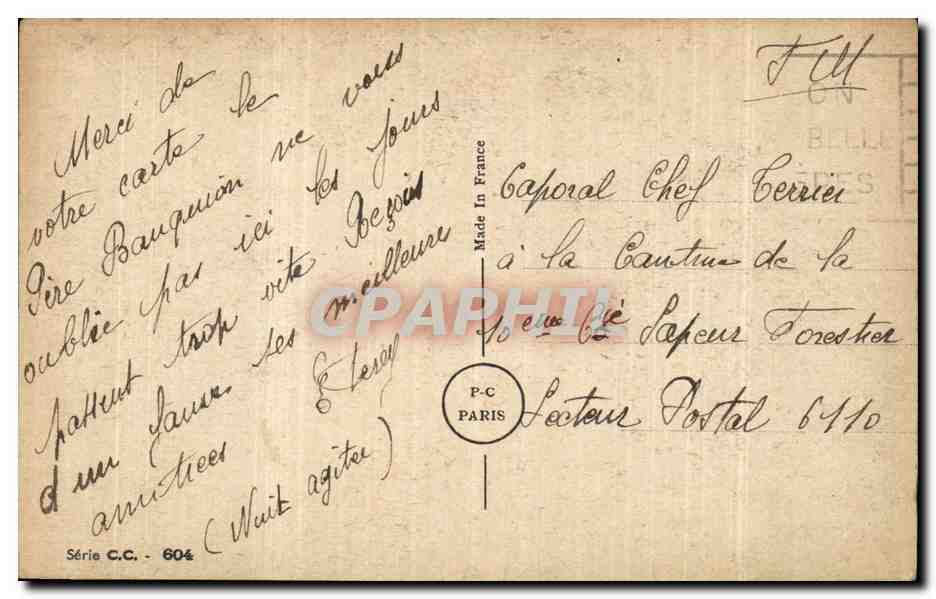 Merci de
votre carte le
Père Bauquenon ne vous
oublie pas ici les jours
passent trop vite Reçois
d'un Jaune ses meilleures
amitiées
(Nuit agitée)
Série C.C. - 604
Made In France
P-C
PARIS
FM
ON
BELLE
Caporal Chef Terrier
à la Cantine de la
10eme Cie Sapeur Forestier
Secteur Postal 6110
CPAPHIL